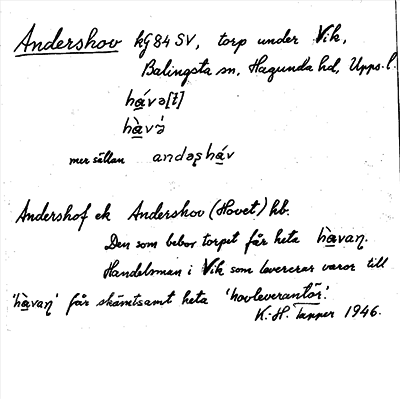 Andershov kG 84 SV, torp under Vik,
Balingsta sn, Hagunda hd, Upps. l.
hávə[t]
hàvə̀
mer sällan andəʂháv
Andershof ek Andershov (Hovet) hb.
Den som bebor torpet får heta hàvaɳ.
Handelsman i Vik som levererar varor till
'hàvaɳ' får skämtsamt heta 'hovleverantör'.
K.-H. Tapper 1946.